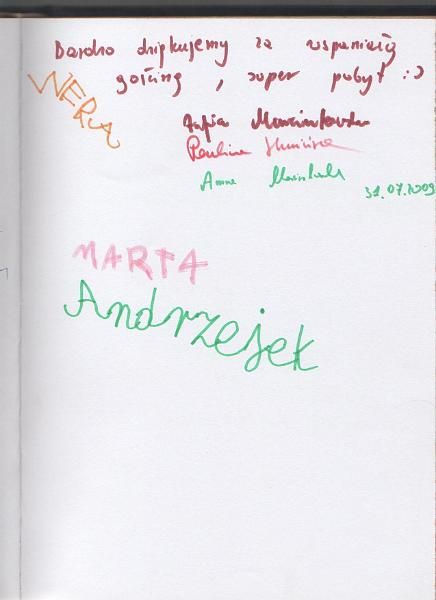 Bardzo dziękujemy za wspaniałą
gościnę, super pobyt :)
WERA
Zofia
Paulina
Anna
31.07.2009
MARTA
Andrzejek